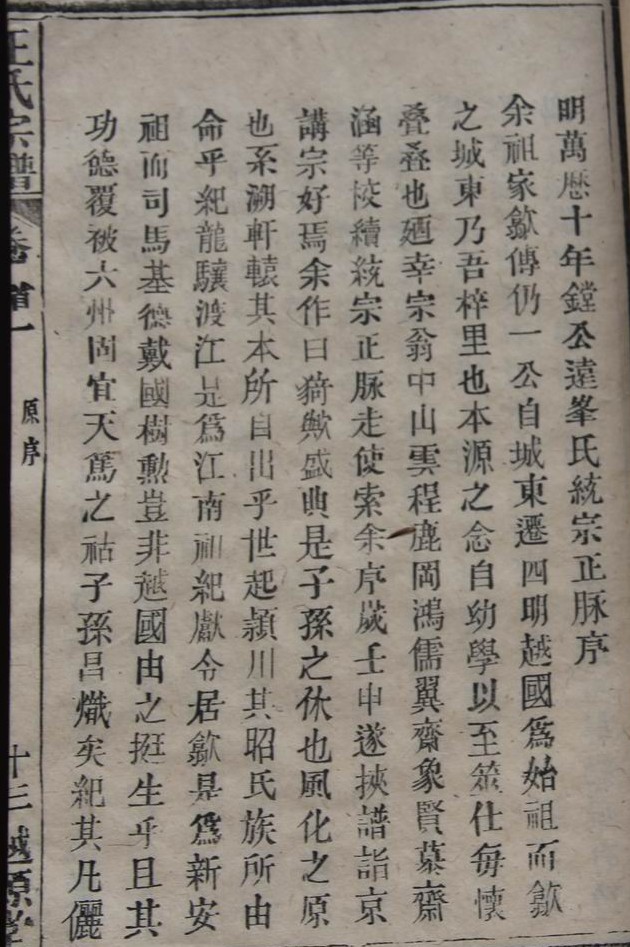 明萬歷十年鏜公遠峯氏統宗正脉序
余祖家歙傳仍一公自城東遷四明越國爲始祖而歙
之城東乃吾梓里也本源之念自幼學以至筮仕每懷
叠叠也廼幸宗翁中山雲程鹿岡鴻儒翼齋象賢慕齋
涵等校續統宗正脉走使索余序歲壬申遂挾譜詣京
講宗好焉余作曰猗歟盛典是子孫之休也風化之原
也系溯軒轅其本所自出乎世起潁川其昭氏族所由
命乎紀龍驤渡江是爲江南祖紀獻令居歙是爲新安
祖而司馬基德戴國樹勲豈非越國由之挺生乎且其
功德覆被六州固宜天篤之祜子孫昌熾矣紀其凡儷
氏宗譜
卷首一
原序
十三